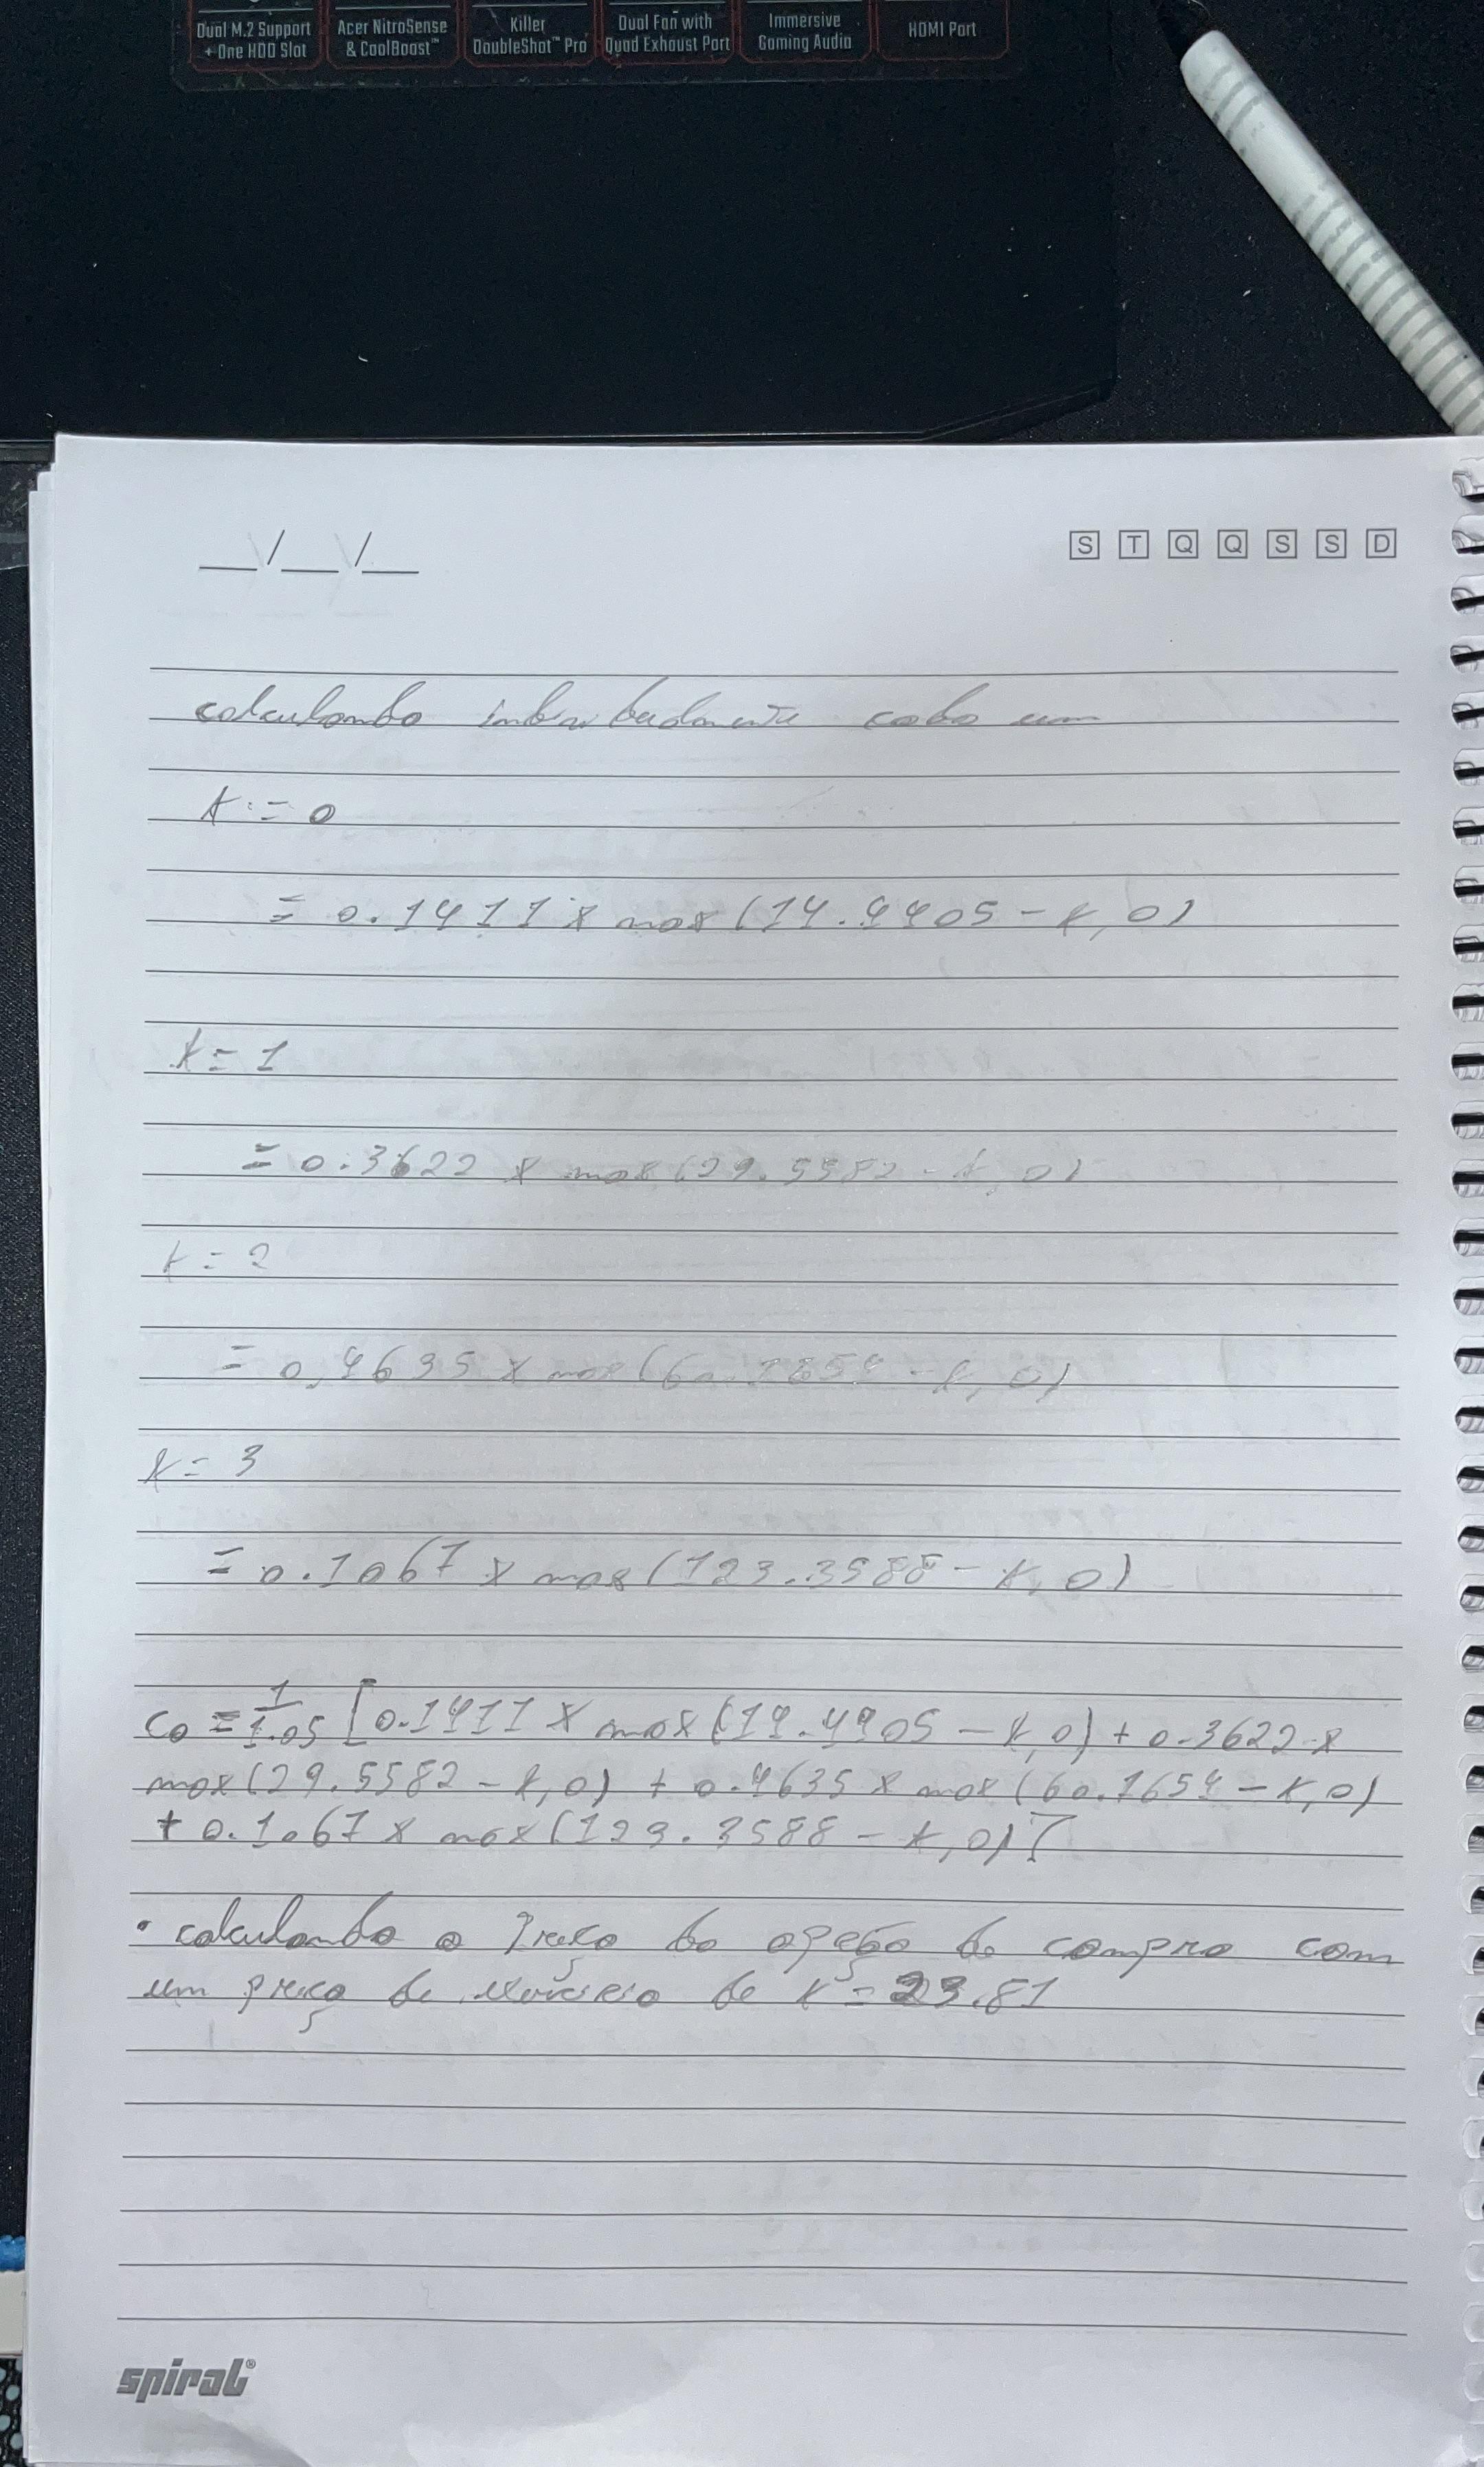 Dual M.2 Support + One HDD Slot
Acer NitroSense & CoolBoost™
Killer DoubleShot™ Pro
Dual Fan with Quad Exhaust Port
Immersive Gaming Audio
HDMI Port
__/__/__ S T Q Q S S D
calculando individualmente cada um
k = 0
= 0.1411 x max(14.4905 - k, 0)
k = 1
= 0.3622 x max(29.5582 - k, 0)
k = 2
= 0,4635 x max(60.1654 - k, 0)
k = 3
= 0.1067 x max(123.3588 - k, 0)
c0 = 1/1.05 [0.1411 x max(14.4905 - k, 0) + 0.3622 x
max(29.5582 - k, 0) + 0.4635 x max(60.1654 - k, 0)
+ 0.1067 x max(123.3588 - k, 0)]
• calculando o Preço da opção de compra com
um preço de exercício de k = 23.81
spiral®